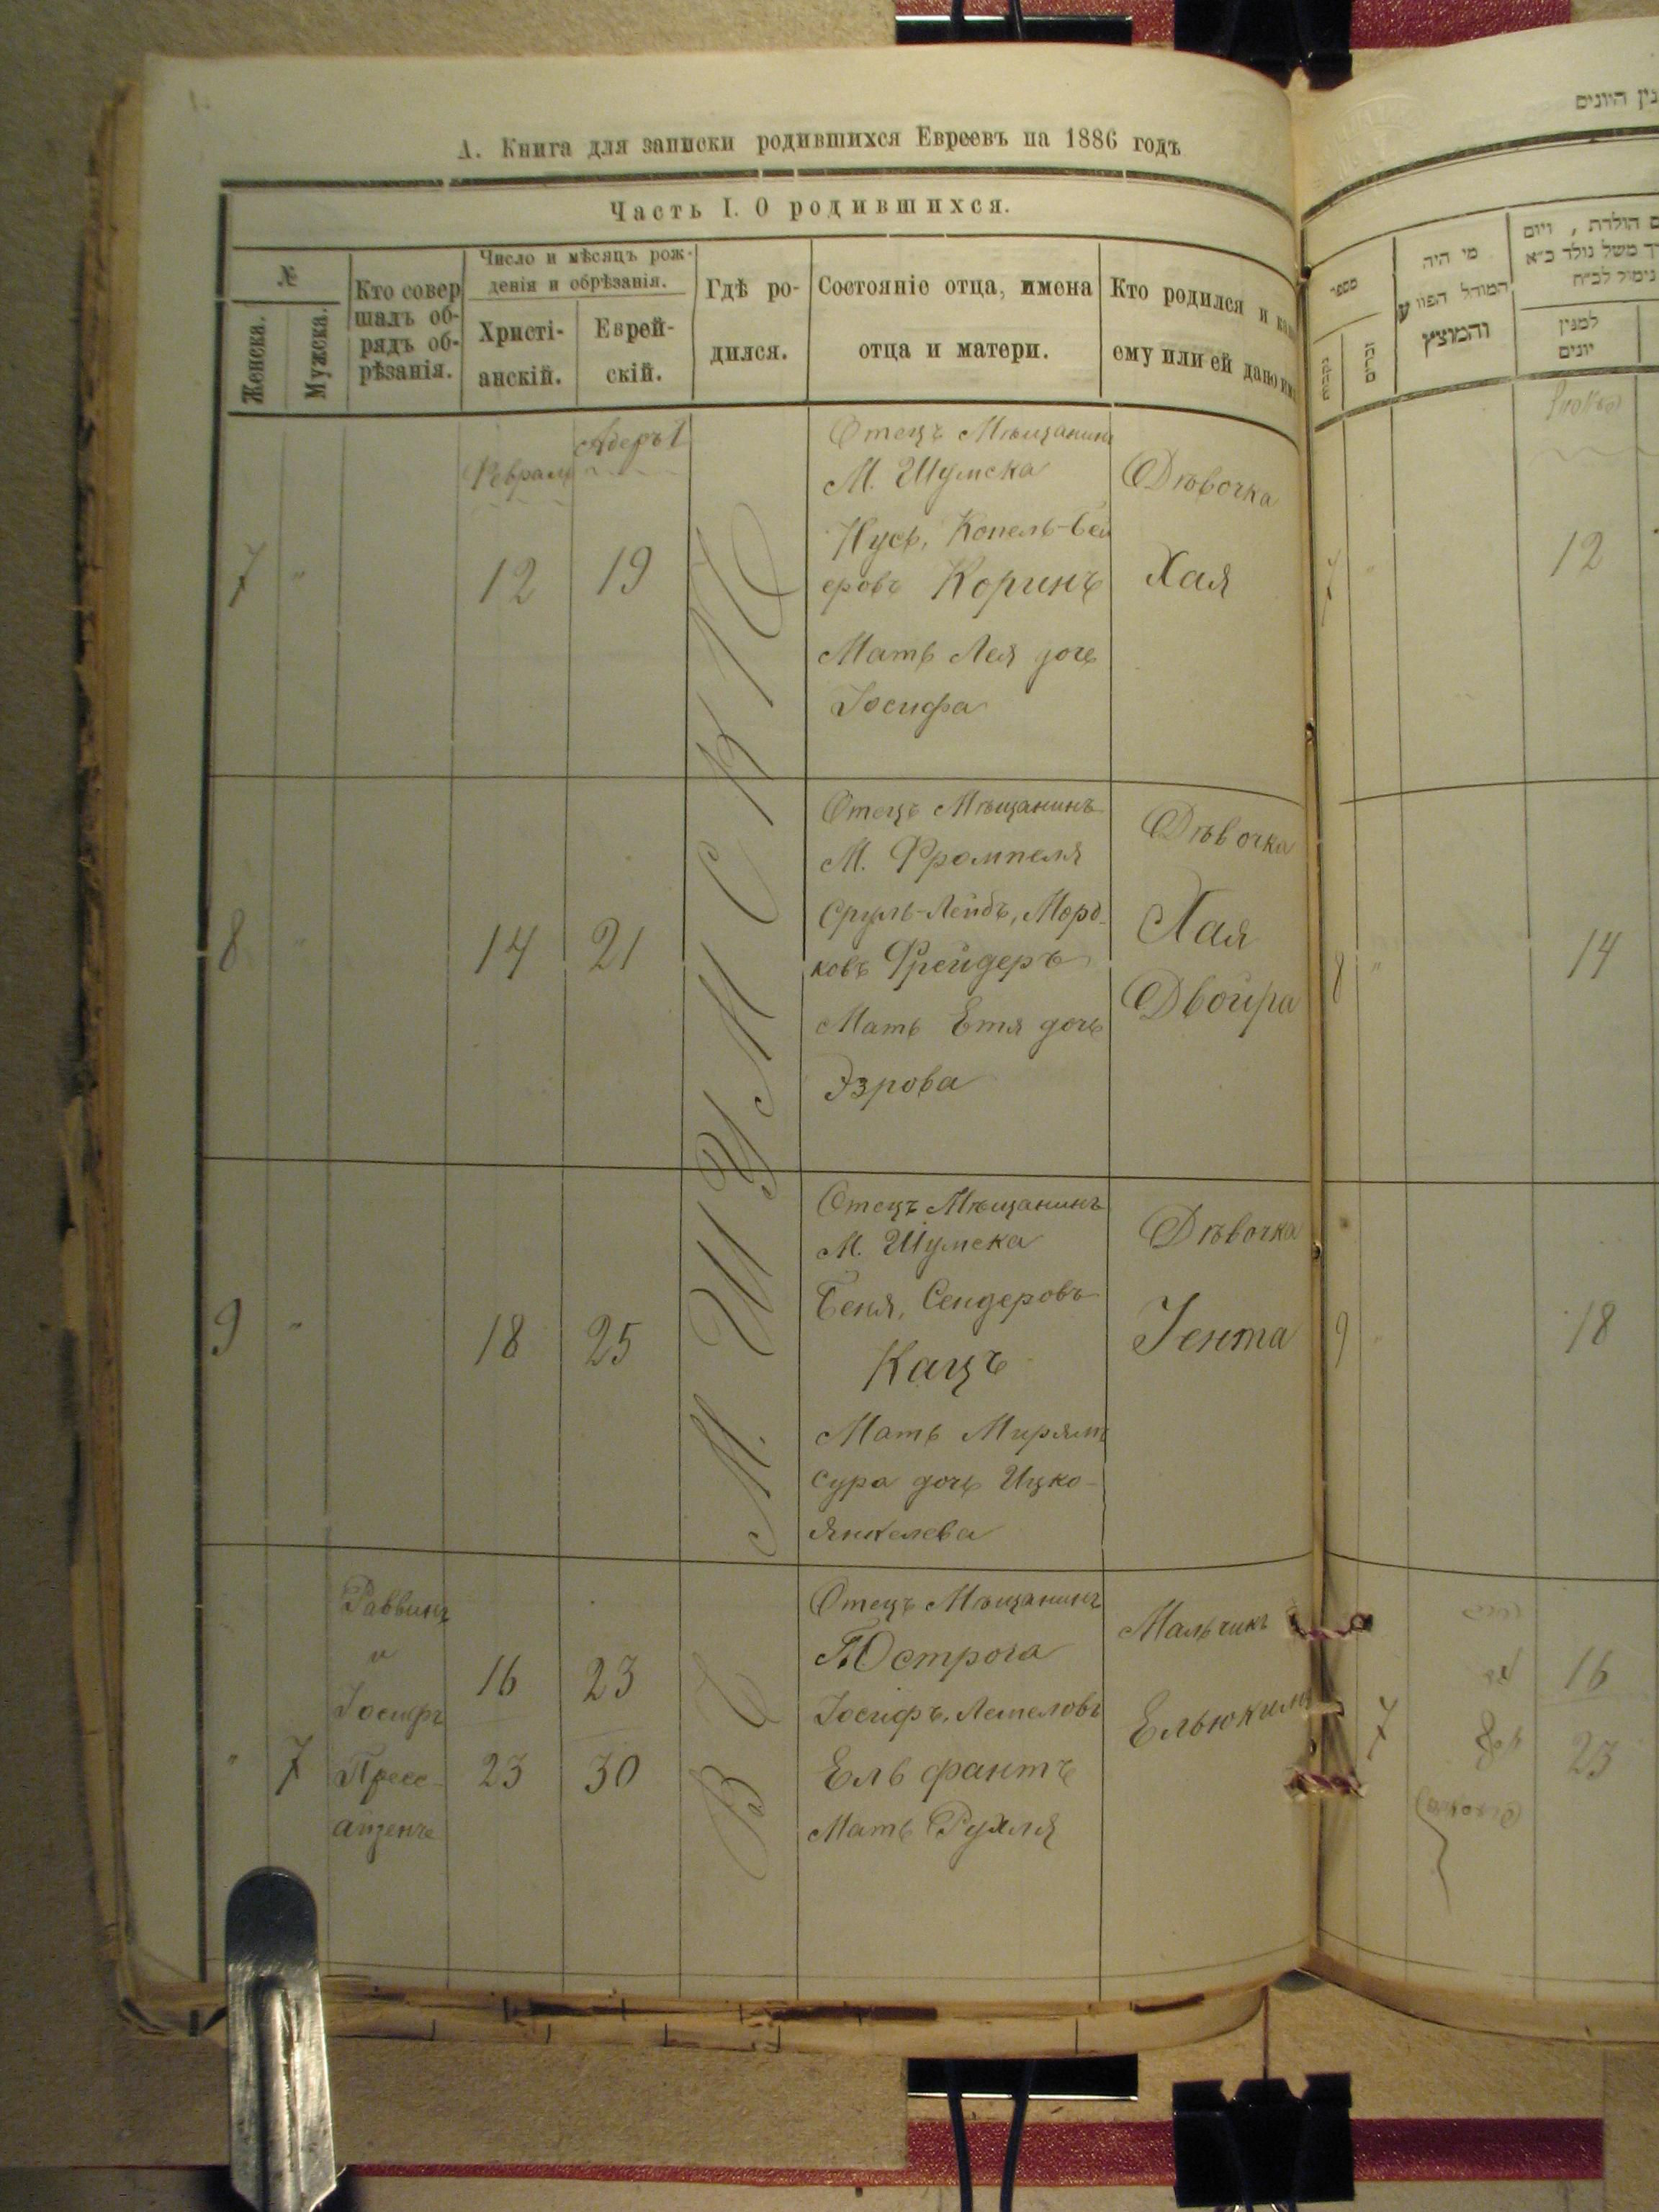 А. Книга для записки родившихся Евреевъ на 1886 годъ
Часть I. О родившихся.
№
Женска.
Мужска.
Кто совер
шалъ об-
рядъ об-
рѣзанія.
Число и мѣсяцъ рож-
денія и обрѣзанія.
Христі-
анскій.
Еврей-
скій.
Гдѣ ро-
дился.
Состояніе отца, имена
отца и матери.
Кто родился и
ему или ей дано
В С М. Ш У М С К Ѣ
7 " 12 19
Февраль
Адеръ 1
Отецъ Мѣщанинъ
М. Шумска
Нусь, Копель-Бей
еровъ Коринъ
Мать Лея дочь
Іосифа
Дѣвочка
Хая
8 " 14 21
Отецъ Мѣщанинъ
М. Фрампеля
Сруль-Лейбъ, Морд-
ковъ Фрейдеръ
Мать Етя дочь
Эзрова
Дѣвочка
Хая
Двойра
9 " 18 25
Отецъ Мѣщанинъ
М. Шумска
Беня, Сендеровъ
Кацъ
Мать Мирямъ
Сура дочь Ицко-
Янкелева
Дѣвочка
Іента
" 7
Раввинъ
и
Іосифъ
16 23
23 30
Отецъ Мѣщанинъ
Г. Острога
Іосифъ, Лемеловъ
Ельфантъ
Мать Рухля
Мальчикъ
Ельюкимъ
היונים
מספר
נקבות
זכרים
מי היה
המוהל הפורע
והמוצץ
הולדת , ויום
משל נולד כ״א
נימול לכ״ח
למנין
יונים
7 " 12
8 " 14
9 " 18
7 16
23